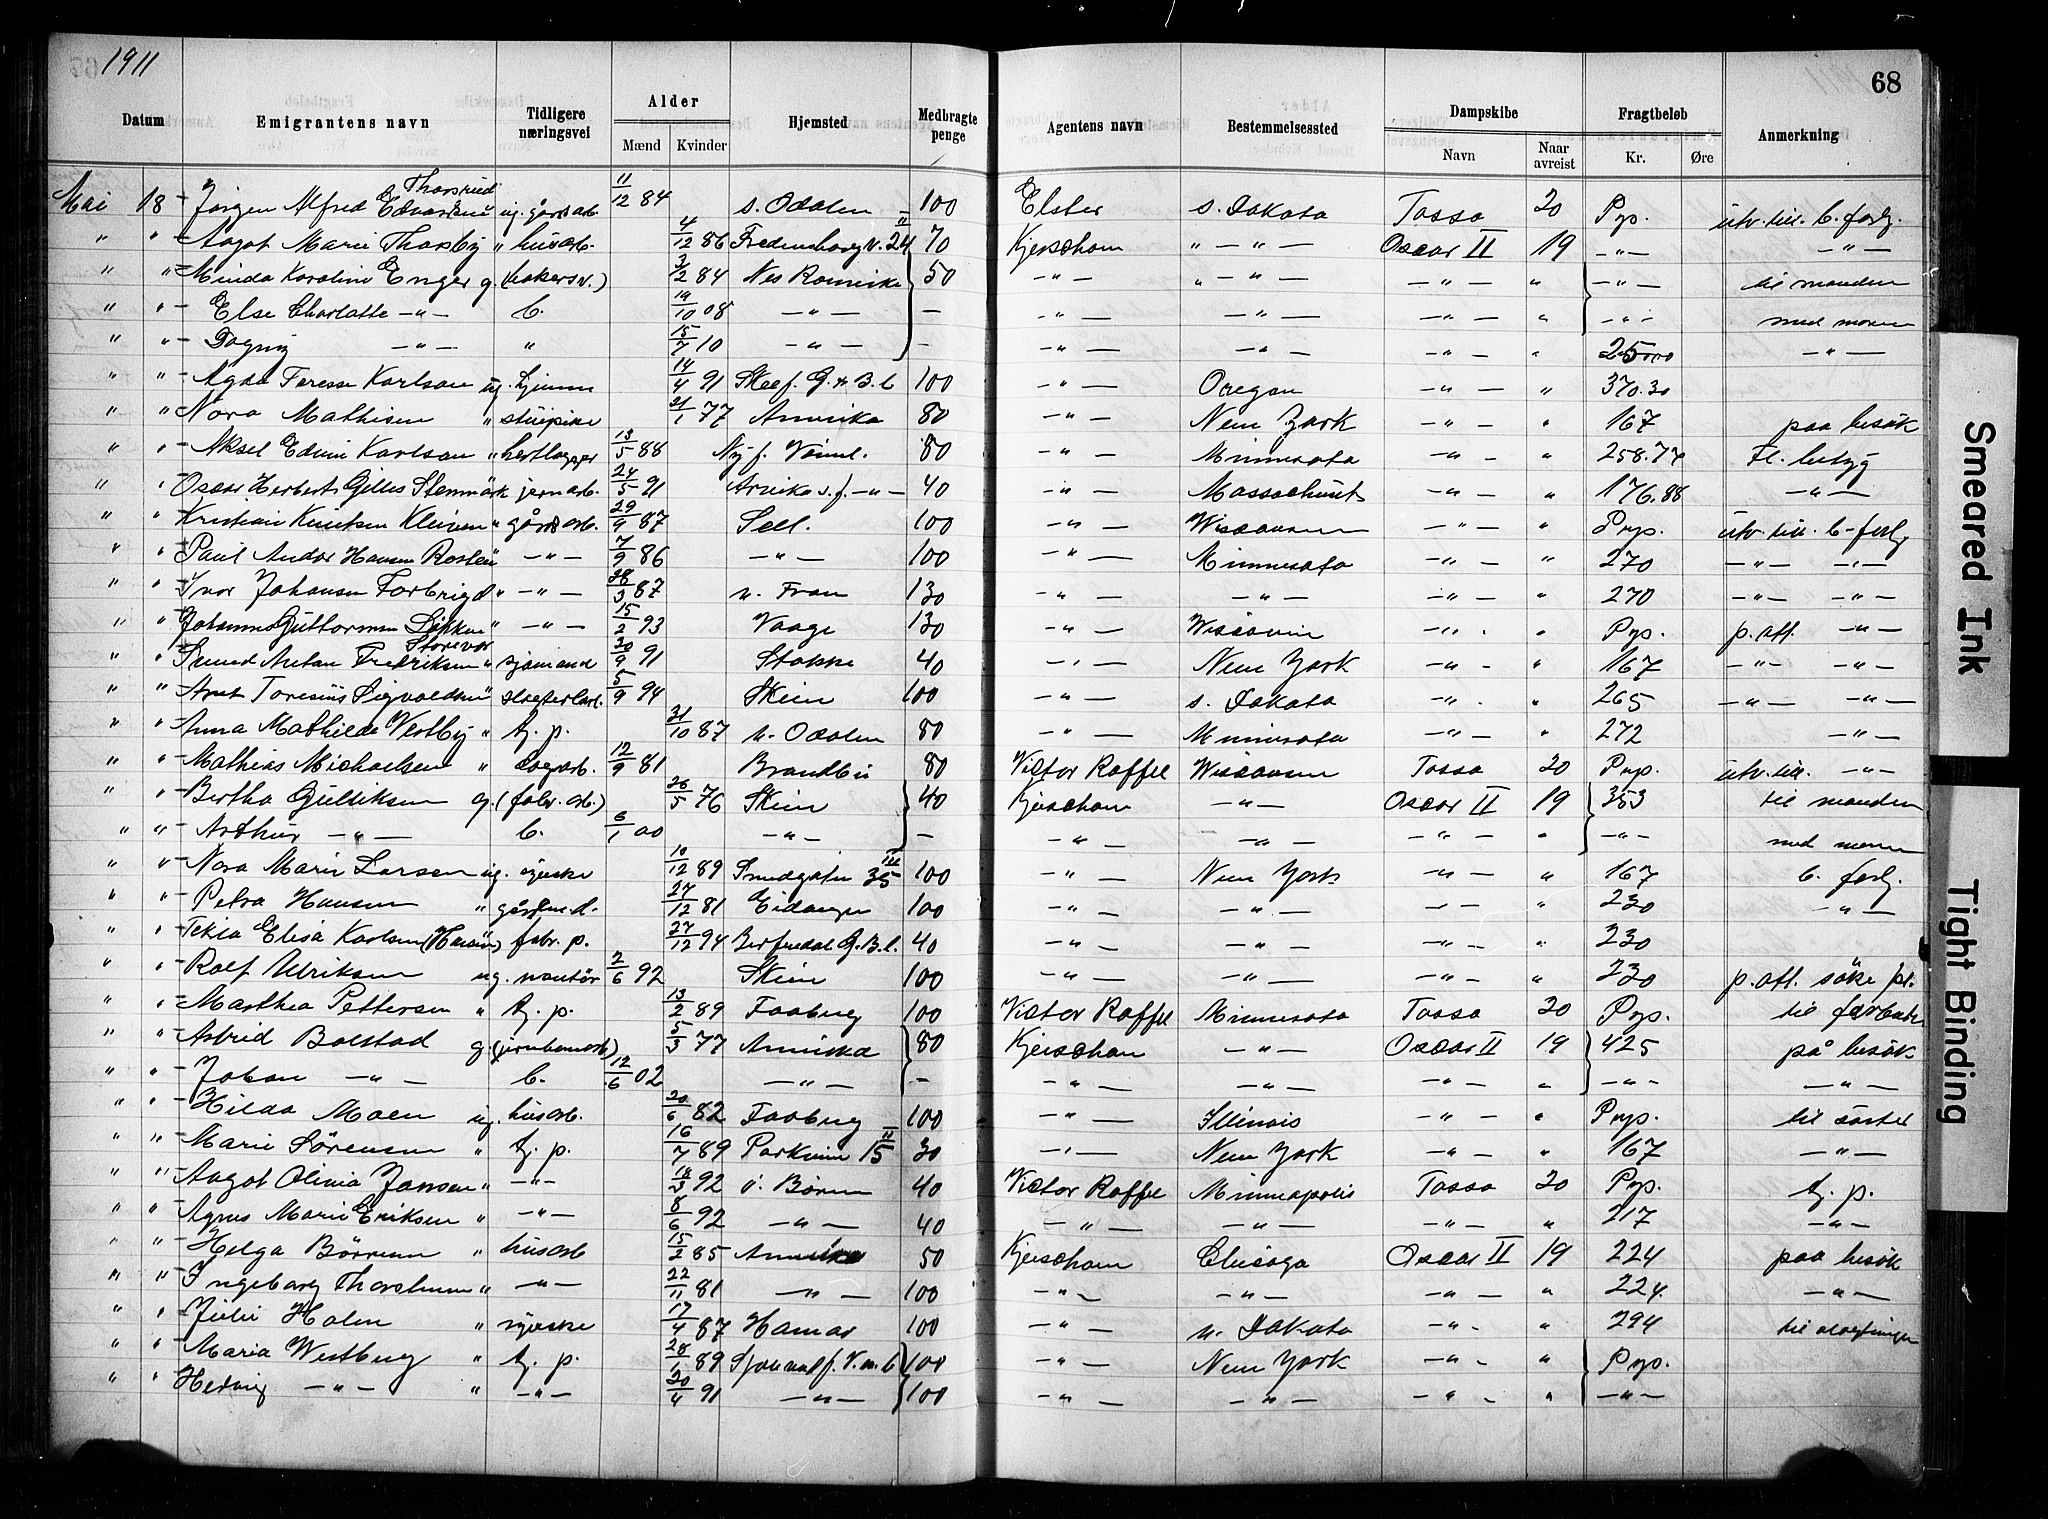 1911
68
Datum | Emigrantens navn | Tidligere næringsvei | Alder Mænd | Kvinder | Hjemsted | Medbragte penge | Agentens navn | Bestemmelsessted | Dampskibe Navn | Naar avreist | Fragtbeløb Kr. | Øre | Anmerkning
Mai 18 Jörgen Alfred Edvardsen Thorsrud ug. gårdsarb. 11/12 84 s. Odalen 100 Elster s. Dakota Tosso 20 Pp. utv. till. b. forlg.
" " Aagot Marie Thorsby " husarb. 4/12 86 Fredensborgv. 24 II 70 Kjerschow " — " — Oscar II 19 — " — — " —
" " Minda Karoline Enger g. (bakersv.) 3/2 84 Nes Romerike 50 — " — " — " — — " — " — " — til manden
" " Else Charlotte — " — b. 19/10 08 — " — — — " — — " — — " — " — " — med moren
" " Dagny — " — " 15/7 10 — " — — — " — — " — — " — " — " —
" " Agda Teresse Karlson ug. hjemme 14/4 91 100 — " — Oregon — " — " 370.30
" " Nora Mathisen " stuepike 21/1 77 Amerika 80 — " — New York — " — " 167 paa besök
" " Aksel Edvin Karlson " 13/5 88 80 — " — Minnesota — " — " 258.74 Fl. betyg
" " Oscar Herbert Gilles Stenmark jernarb. 24/5 91 Arvika s. f. — " — 40 — " — Massachuset — " — " 176.88 — " —
" " Kristian Knutsen Kleiven " gårdsarb. 29/9 87 Sell. 100 — " — Wisconsin — " — " Pp. utv. till. b. forlg.
" " Paul Andor Hansen Rosten — " — 7/9 86 — " — 100 — " — Minnesota — " — " 270 — " — — " —
" " Ivor Johansen Forbrigd " — " — 28/3 87 n. Fron 130 — " — — " — — " — " 270 — " — — " —
" " Johannes Guttormsen Løkken " — " — 15/2 93 Vaage 130 — " — Wisconsin — " — " Pp. p. att. — " —
" " Anton Fredriksen Storevar " sjömand 30/9 91 Stokke 40 — " — New York — " — " 167 — " — — " —
" " Arnt Toresius Sigvaldsen " 5/9 94 Skien 100 — " — s. Dakota — " — " 265 — " — — " —
" " Anna Mathilde Vestby " tj. p. 31/10 87 n. Odalen 80 — " — Minnesota — " — " 272 — " —
" " Mathias Michaelsen " dagarb. 12/9 81 Brandbu 80 Victor Roffel Wisconsin Tosso 20 Pp. utv. till. — " —
" " Bertha Gulliksen g. (fabr. arb.) 26/5 76 Skien 40 Kjerschow — " — Oscar II 19 353 til manden
" " Arthur — " — b. 6/1 00 — " — — — " — — " — — " — " — " — med moren
" " Nora Marie Larsen ug. syerske 10/12 89 Smedgaten 35 III 100 — " — New York — " — " 167 b. forlg.
" " Petra Hansen " 27/12 81 Eidanger 100 — " — — " — — " — " 230 — " —
" " Tekla Elisa Karlsen (Hansen) fabr. p. 27/12 94 G. B. l. 40 — " — — " — — " — " 230
" " Rolf Ulriksen ug. montör 2/6 92 Skien 100 — " — — " — — " — " 230 p. att. söke pl.
" " Marthea Pettersen " tj. p. 13/2 89 Faaberg 100 Victor Roffel Minnesota Tosso 20 Pp.
" " Astrid Bolstad g. (jernbanearb.) 5/3 77 Amerika 80 Kjerschow — " — Oscar II 19 425 på besök
" " Johan — " — b. 12/6 02 — " — — — " — — " — — " — " — " — — " —
" " Hilda Moen ug. husarb. 20/6 82 Faaberg 100 — " — Illinois — " — " Pp. til söster
" " Marie Sörensen " tj. p. 16/7 89 Parkveien 15 II 30 — " — New York — " — " 167 — " —
" " Aagot Olivia Jansen " — " — 18/3 92 ö. Börsen 40 Victor Roffel Minneapolis Tosso 20 Pp. tj. p.
" " Agnes Marie Eriksen " — " — 8/6 92 — " — 40 — " — — " — — " — " 217 — " —
" " Helga Börresen " husarb 15/2 85 Amerika 50 Kjerschow Chicago Oscar II 19 224 paa besök
" " Ingeborg Thorstensen " — " — 22/11 81 — " — 100 — " — — " — — " — " 224 — " —
" " Julie Holm " syerske 17/4 87 Hamar 100 — " — n. Dakota — " — " 294 til slegtninger
" " Maria Westberg " tj. p. 28/1 89 100 — " — New York — " — " Pp.
" " Hedvig — " — " — " — 20/4 91 — " — 100 — " — — " — — " — " — " —
Smeared Ink
Tight Binding